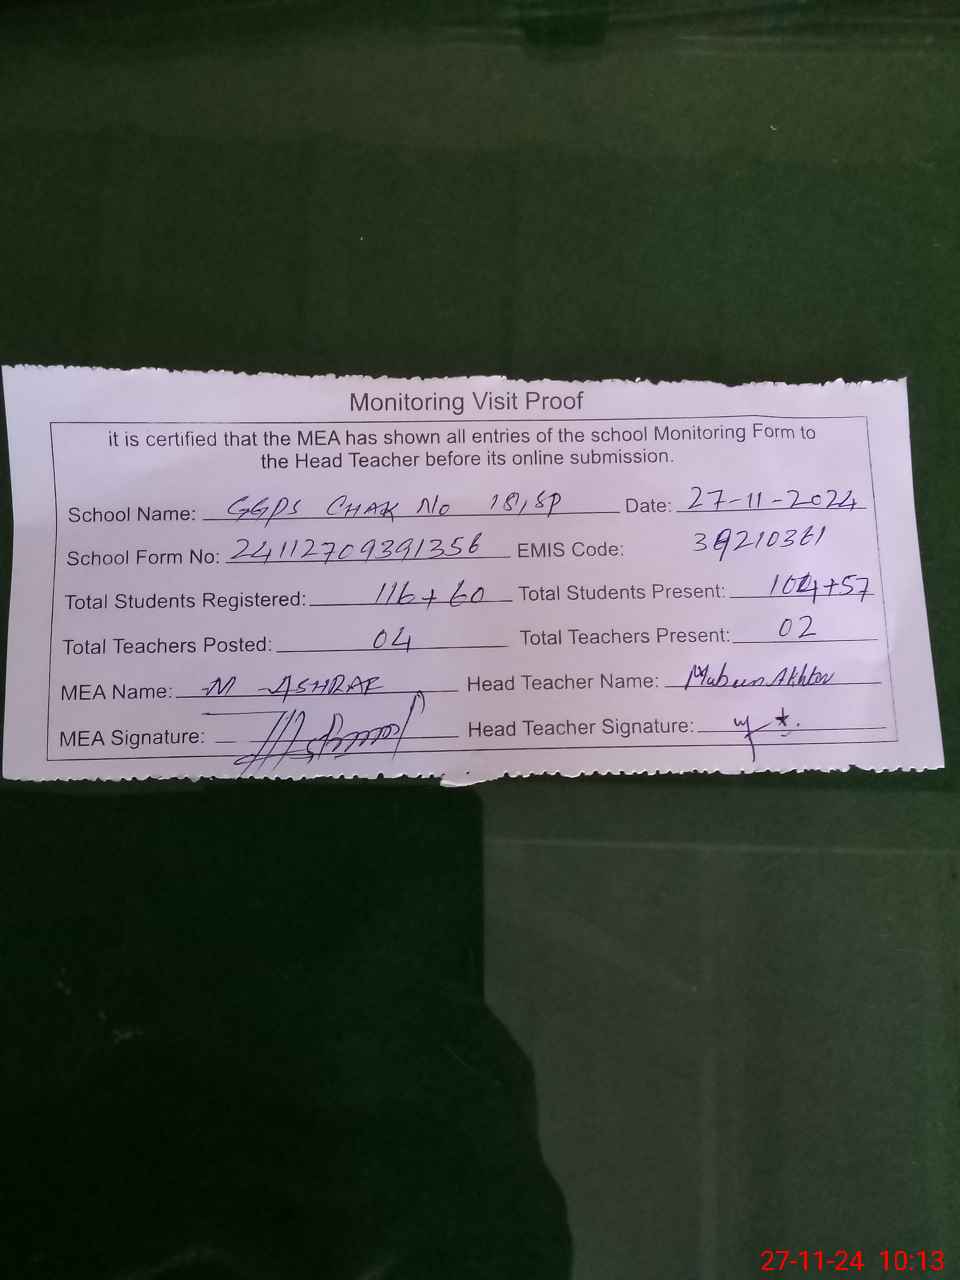 Monitoring Visit Proof
it is certified that the MEA has shown all entries of the school Monitoring Form to
the Head Teacher before its online submission.
School Name: GGPS CHAK No 18/SP Date: 27-11-2024
School Form No: 24112709391356 EMIS Code: 39210361
Total Students Registered: 116+60 Total Students Present: 104+57
Total Teachers Posted: 04 Total Teachers Present: 02
MEA Name: M ASHRAF Head Teacher Name: Akhter
MEA Signature: Head Teacher Signature:
27-11-24 10:13